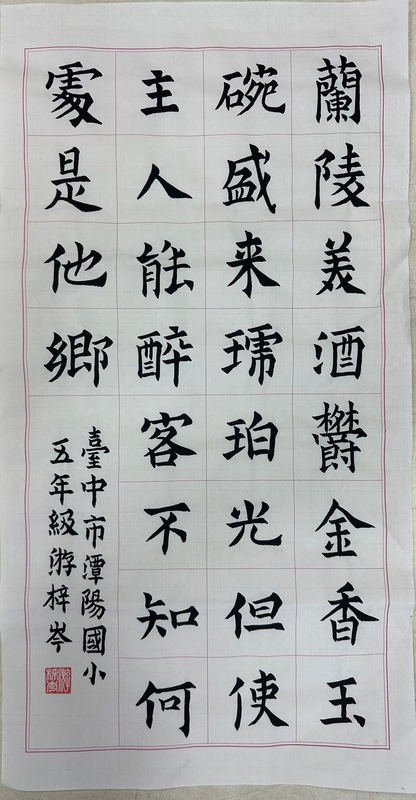 蘭陵美酒欝金香玉
碗盛来瑪珀光但使
主人能醉客不知何
處是他鄉
臺中市潭陽國小
五年級游梓岑